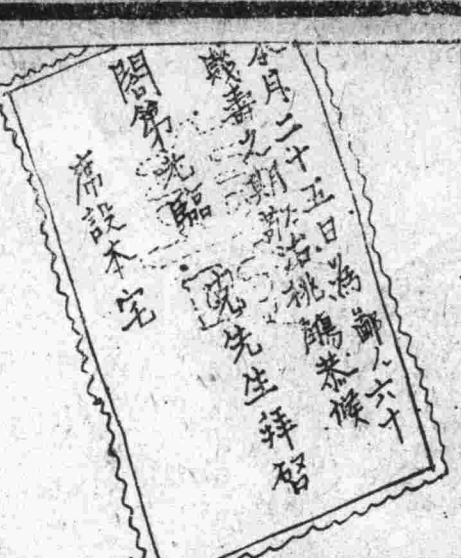 本月二十五日為鄙人六十
賤壽之期敬治桃觴恭候
閤第光臨　兎先生拜啓
席設本宅